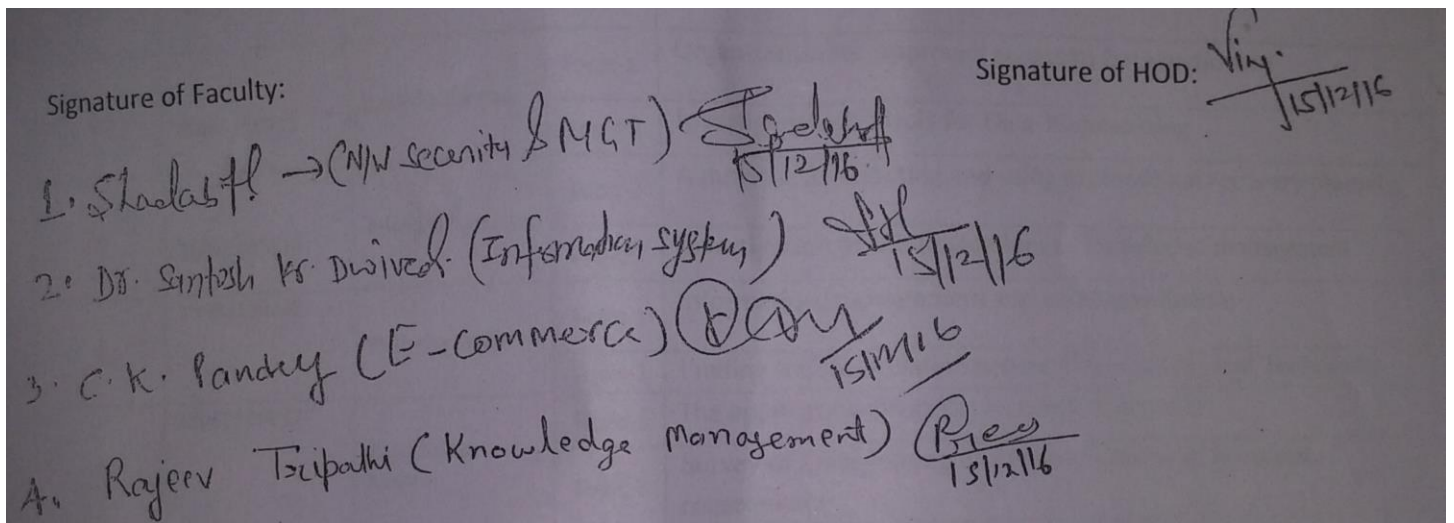 Signature of Faculty: Signature of HOD:
15/12/16
1. Shadab Ali → (N/W Security & MGT)
15/12/16
2. Dr. Santosh Kr. Dwivedi (Information System)
15/12/16
3. C.K. Pandey (E-Commerce)
15/12/16
4. Rajeev Tripathi (Knowledge Management)
15/12/16